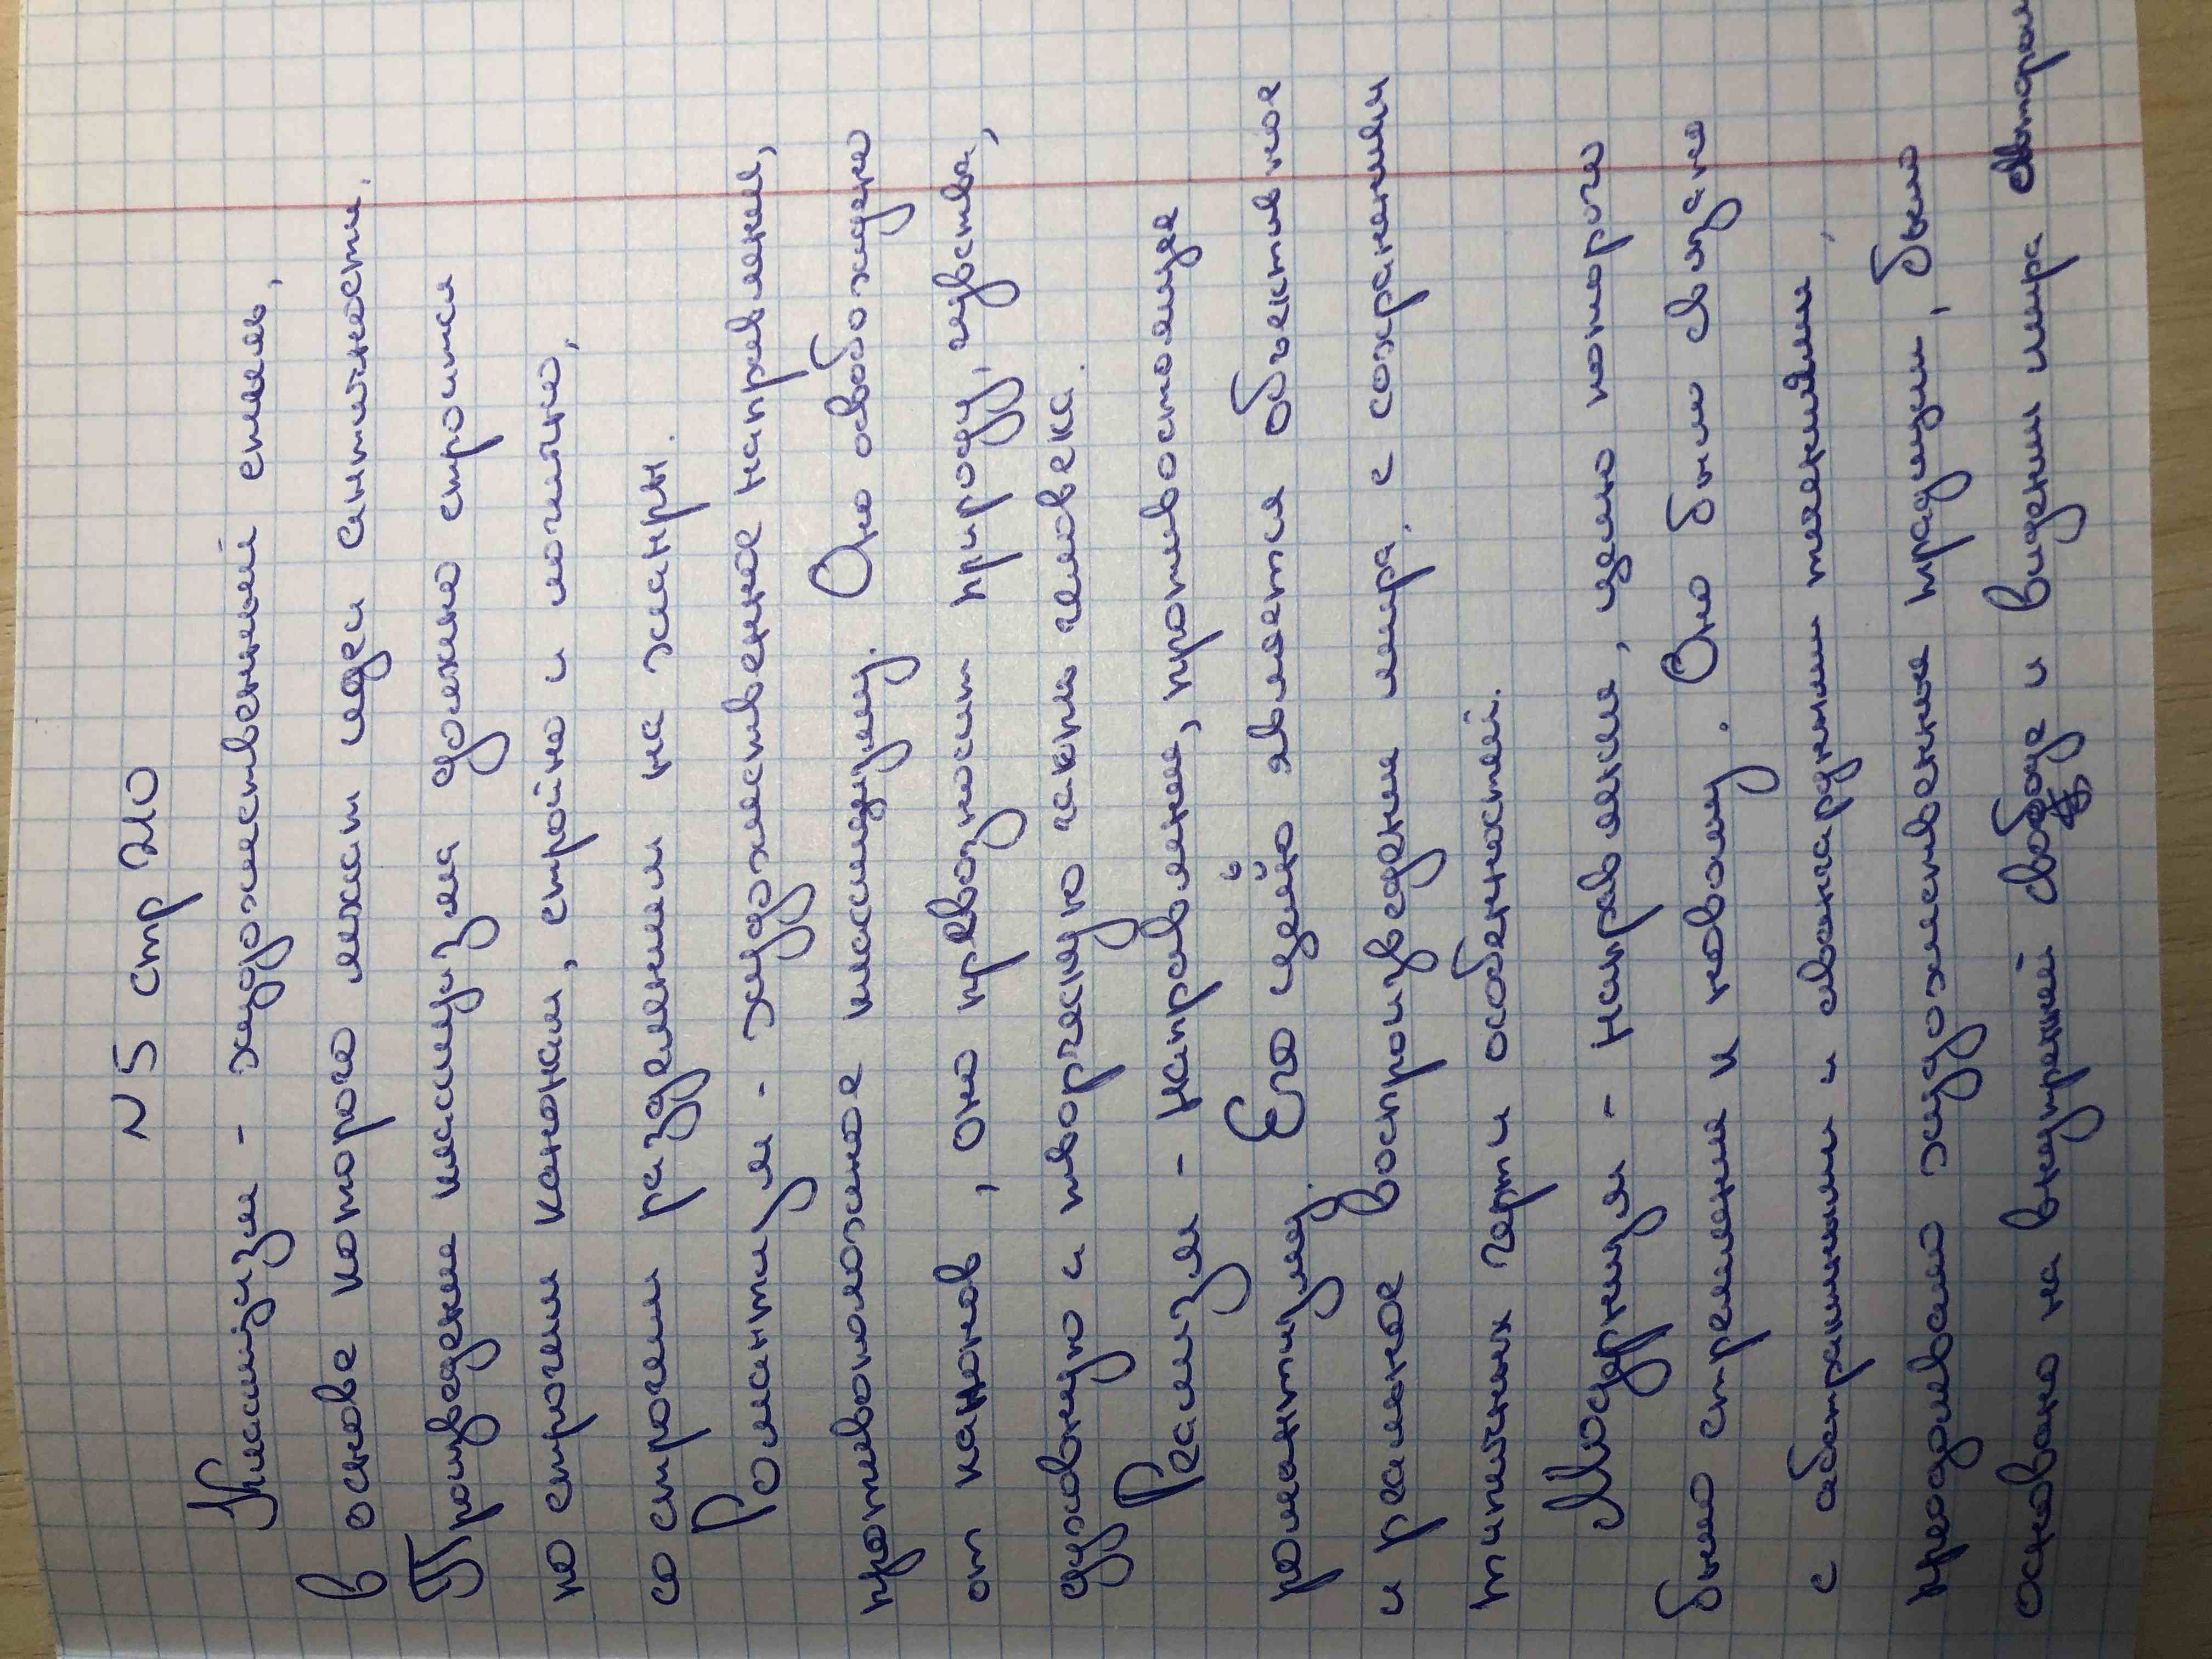 N 5 стр 210
Классицизм - художественный стиль,
в основе которого лежат идеи античности.
Произведение классицизма должно строится
по строгим канонам, стройно и логично,
со строгим разделением на жанры.
Романтизм - художественное направление,
противоположное классицизму. Оно освобождено
от канонов, оно превозносит природу, чувства,
духовную и творческую жизнь человека.
Реализм - направление, противостоящее
романтизму. Его целью является объективное
и реальное воспроизведение мира, с сохранением
типичных черт и особенностей.
Модернизм - направление, целью которого
было стремление к новому. Оно было связано
с абстрактными и авангардными течениями,
преодолевало художественные традиции, было
основано на внутренней свободе и видении мира автором